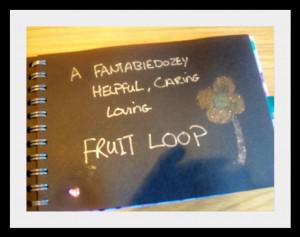 A FANTABIEDOZEY
HELPFUL, CARING
LOVING
FRUIT LOOP